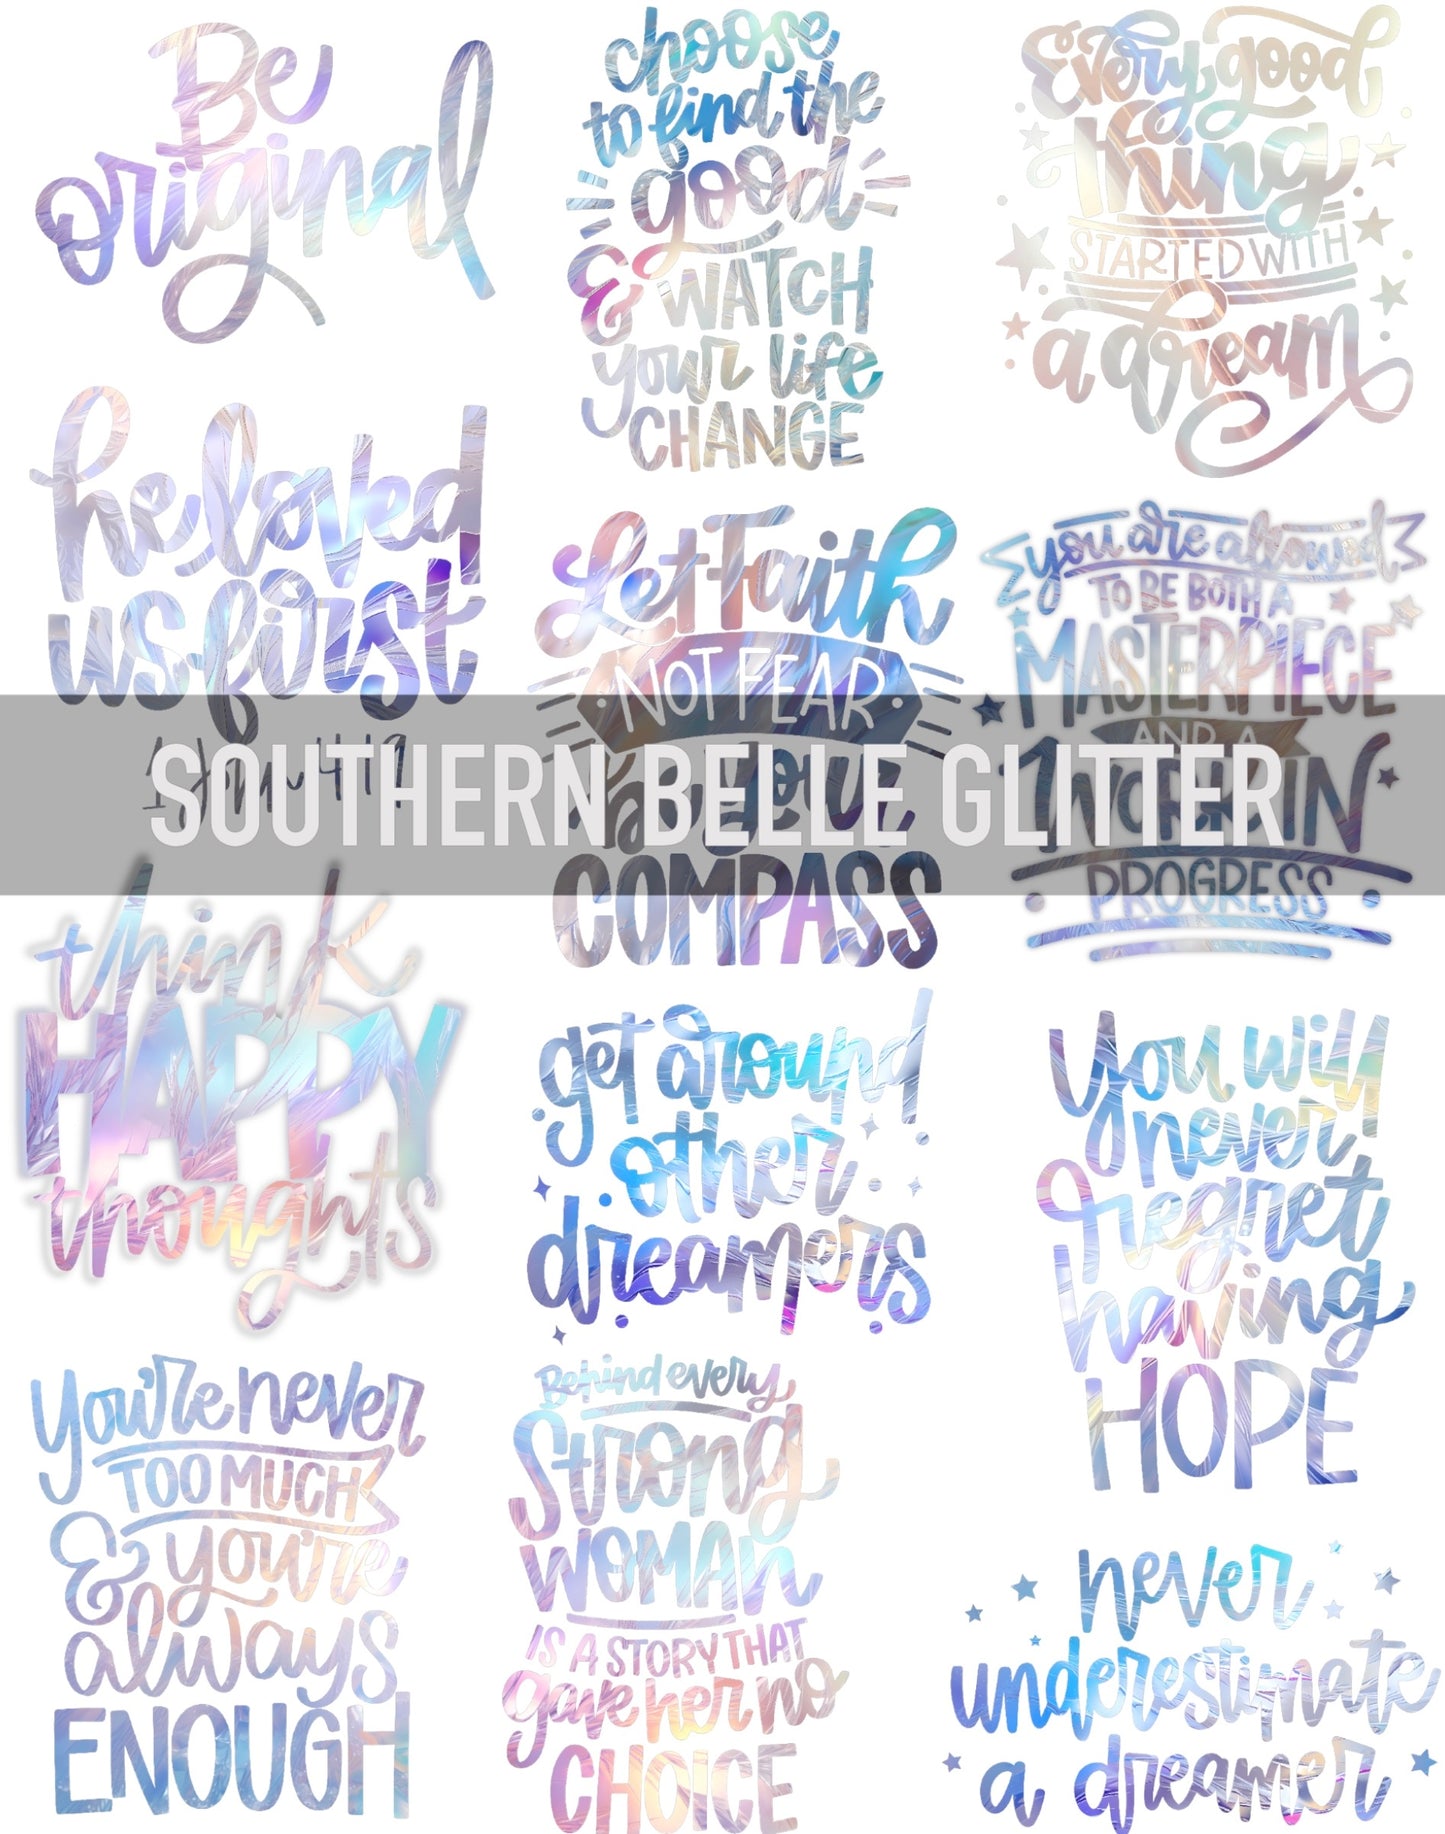 Be
original
choose
to find the
good
& WATCH
your life
CHANGE
Every good
thing
STARTED WITH
a dream
he loved
us first
1 John 4:19
Let Faith
NOT FEAR
be your
COMPASS
you are allowed
TO BE BOTH A
MASTERPIECE
AND A
WORK IN
PROGRESS
SOUTHERN BELLE GLITTER
think
HAPPY
thoughts
get around
other
dreamers
You will
never
regret
having
HOPE
you're never
TOO MUCH
& you're
always
ENOUGH
Behind every
Strong
WOMAN
IS A STORY THAT
gave her no
CHOICE
never
underestimate
a dreamer